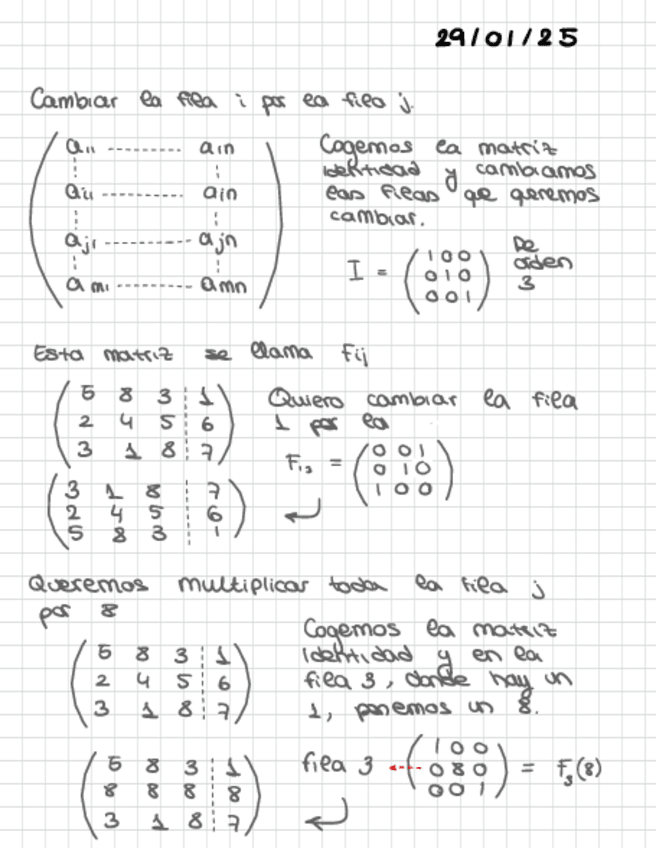 29/01/25
Cambiar la fila i por la fila j.
a11 ---------- a1n
ai1 ---------- ain
aj1 ---------- ajn
am1 ---------- amn
Cogemos la matriz
identidad y cambiamos
las filas que queremos
cambiar.
I = ( 1 0 0
0 1 0
0 0 1 )
De
orden
3
Esta matriz se llama Fij
( 5 8 3 | 1
2 4 5 | 6
3 1 8 | 7 )
Quiero cambiar la fila
1 por la
F13 = ( 0 0 1
0 1 0
1 0 0 )
( 3 1 8 | 7
2 4 5 | 6
5 8 3 | 1 )
Queremos multiplicar toda la fila j
por 8
( 5 8 3 | 1
2 4 5 | 6
3 1 8 | 7 )
Cogemos la matriz
identidad y en la
fila 3, donde hay un
1, ponemos un 8.
fila 3 ( 1 0 0
0 8 0
0 0 1 ) = F3(8)
( 5 8 3 | 1
8 8 8 | 8
3 1 8 | 7 )